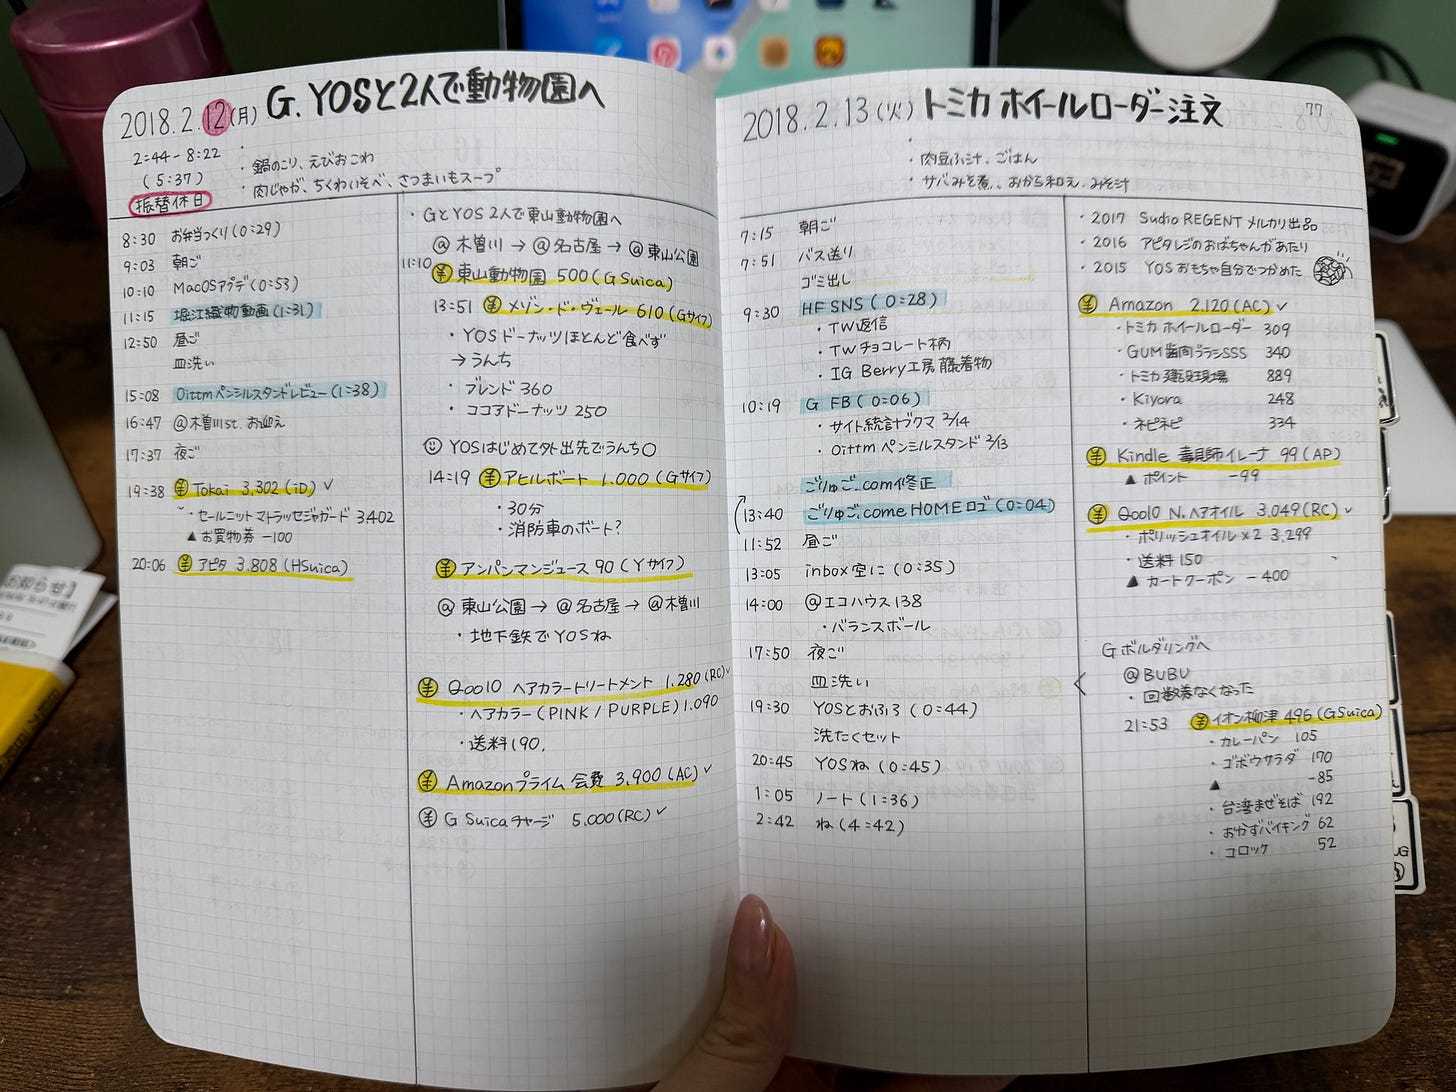 2018.2.12(月) G.YOSと2人で動物園へ
2:44-8:22
(5:37)
振替休日
・
・鍋のこり、えびおこわ
・肉じゃが、ちくわいそべ、さつまいもスープ
8:30 お弁当づくり(0:29)
9:03 朝ご
10:10 MacOSアプデ(0:53)
11:15 堀江織物動画(1:31)
12:50 昼ご
皿洗い
15:08 Oittmペンシルスタンドレビュー(1:38)
16:47 @木曽川st.お迎え
17:37 夜ご
19:38 ¥ Tokai 3,302(iD)✓
・セールニットマトラッセジャガード 3402
▲お買物券 -100
20:06 ¥ アピタ 3,808(HSuica)
・GとYOS 2人で東山動物園へ
@木曽川→@名古屋→@東山公園
11:10 ¥ 東山動物園 500(GSuica)
13:51 ¥ メゾン・ド・ヴェール 610(Gサイフ)
・YOSドーナッツほとんど食べず
→うんち
・ブレンド 360
・ココアドーナッツ 250
YOSはじめて外出先でうんち〇
14:19 ¥ アヒルボート 1,000(Gサイフ)
・30分
・消防車のボート?
¥ アンパンマンジュース 90(Yサイフ)
@東山公園→@名古屋→@木曽川
・地下鉄でYOSね
¥ Qoo10 ヘアカラートリートメント 1,280(RC)✓
・ヘアカラー(PINK/PURPLE)1,090
・送料190.
¥ Amazonプライム会費 3,900(AC)✓
¥ G Suicaチャージ 5,000(RC)✓
2018.2.13(火) トミカ ホイールローダー注文
77
・
・肉豆ふ汁、ごはん
・サバみそ煮、おから和え、みそ汁
7:15 朝ご
7:51 バス送り
ゴミ出し
9:30 HF SNS(0:28)
・TW返信
・TWチョコレート柄
・IG Berry工房藤着物
10:19 G FB(0:06)
・サイト統計ブクマ 2/14
・Oittmペンシルスタンド 2/13
ごりゅご.com修正
13:40 ごりゅご.come HOMEロゴ(0:04)
11:52 昼ご
13:05 inbox空に(0:35)
14:00 @エコハウス138
・バランスボール
17:50 夜ご
皿洗い
19:30 YOSとおふろ(0:44)
洗たくセット
20:45 YOSね(0:45)
1:05 ノート(1:36)
2:42 ね(4:42)
・2017 Sudio REGENTメルカリ出品
・2016 アピタレジのおばちゃんがあたり
・2015 YOSおもちゃ自分でつかめた
¥ Amazon 2,120(AC)✓
・トミカ ホイールローダー 309
・GUM歯間ブラシSSS 340
・トミカ建設現場 889
・Kiyora 248
・ネピネピ 334
¥ Kindle 毒見師イレーナ 99(AP)
▲ポイント -99
¥ Qoo10 N.ヘアオイル 3,049(RC)✓
・ポリッシュオイル×2 3,299
・送料150
▲カートクーポン -400
Gボルダリングへ
@BUBU
・回数券なくなった
21:53 ¥ イオン柳津 496(GSuica)
・カレーパン 105
・ゴボウサラダ 170
▲ -85
・台湾まぜそば 192
・おかずバイキング 62
・コロッケ 52
お知らせ】
UG